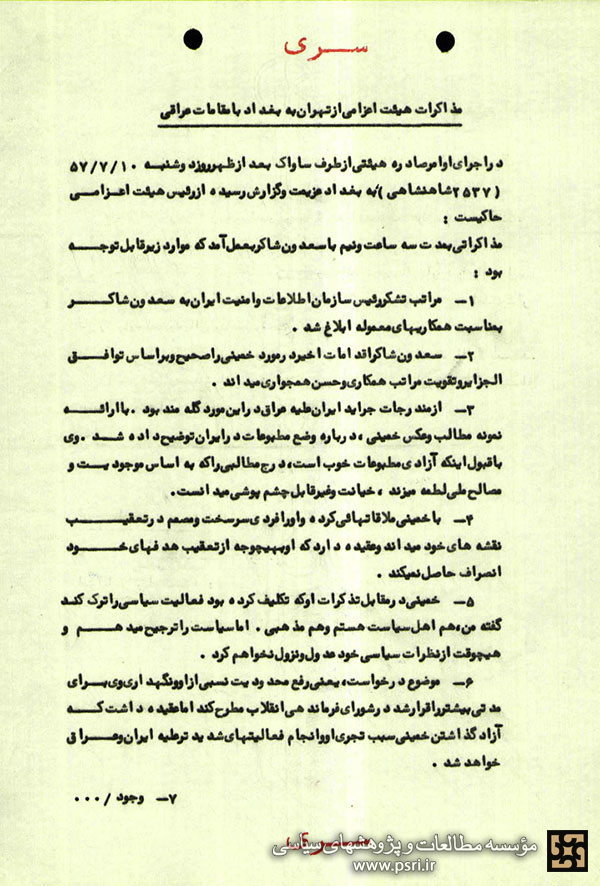 سری
مذاکرات هیئت اعزامی از تهران به بغداد با مقامات عراقی
در اجرای اوامر صادره هیئتی از طرف ساواک بعد از ظهر روز دوشنبه ۵۷/۷/۱۰
(۲۵۳۷ شاهنشاهی) به بغداد عزیمت و گزارش رسیده از رئیس هیئت اعزامی
حاکیست :
مذاکراتی بمدت سه ساعت ونیم با سعدون شاکر بعمل آمد که موارد زیر قابل توجه
بود :
۱ـ مراتب تشکر رئیس سازمان اطلاعات وامنیت ایران به سعدون شاکر
بمناسبت همکاریهای معموله ابلاغ شد .
۲ـ سعدون شاکر اقدامات اخیر در مورد خمینی را صحیح و براساس توافق
الجزایر و تقویت مراتب همکاری وحسن همجواری میداند .
۳ـ از مندرجات جراید ایران علیه عراق در این مورد گله مند بود . با ارائه
نمونه مطالب وعکس خمینی ، درباره وضع مطبوعات در ایران توضیح داده شد . وی
با قبول اینکه آزادی مطبوعات خوب است، درج مطالبی را که به اساس موجودیت و
مصالح ملی لطمه میزند ، خیانت وغیر قابل چشم پوشی میدانست.
۴ـ با خمینی ملاقاتهائی کرده و او را فردی سرسخت ومصمم در تعقیب
نقشه های خود میداند وعقیده دارد که او بهیچوجه از تعقیب هدفهای خود
انصراف حاصل نمیکند .
۵ـ خمینی در مقابل تذکرات او که تکلیف کرده بود فعالیت سیاسی را ترک کند
گفته من، هم اهل سیاست هستم وهم مذهبی . اما سیاست را ترجیح میدهم و
هیچوقت از نظرات سیاسی خود عدول ونزول نخواهم کرد .
۶ـ موضوع درخواست، یعنی رفع محدودیت نسبی از او ونگهداری وی برای
مدتی بیشتر را قرار شد در شورای فرماندهی انقلاب مطرح کند اما عقیده داشت که
آزاد گذاشتن خمینی سبب تجری او وانجام فعالیتهای شدیدتر علیه ایران وعراق
خواهد شد .
۷ـ وجود / ۰۰۰
سری
مؤسسه مطالعات و پژوهشهای سیاسی
www.psri.ir